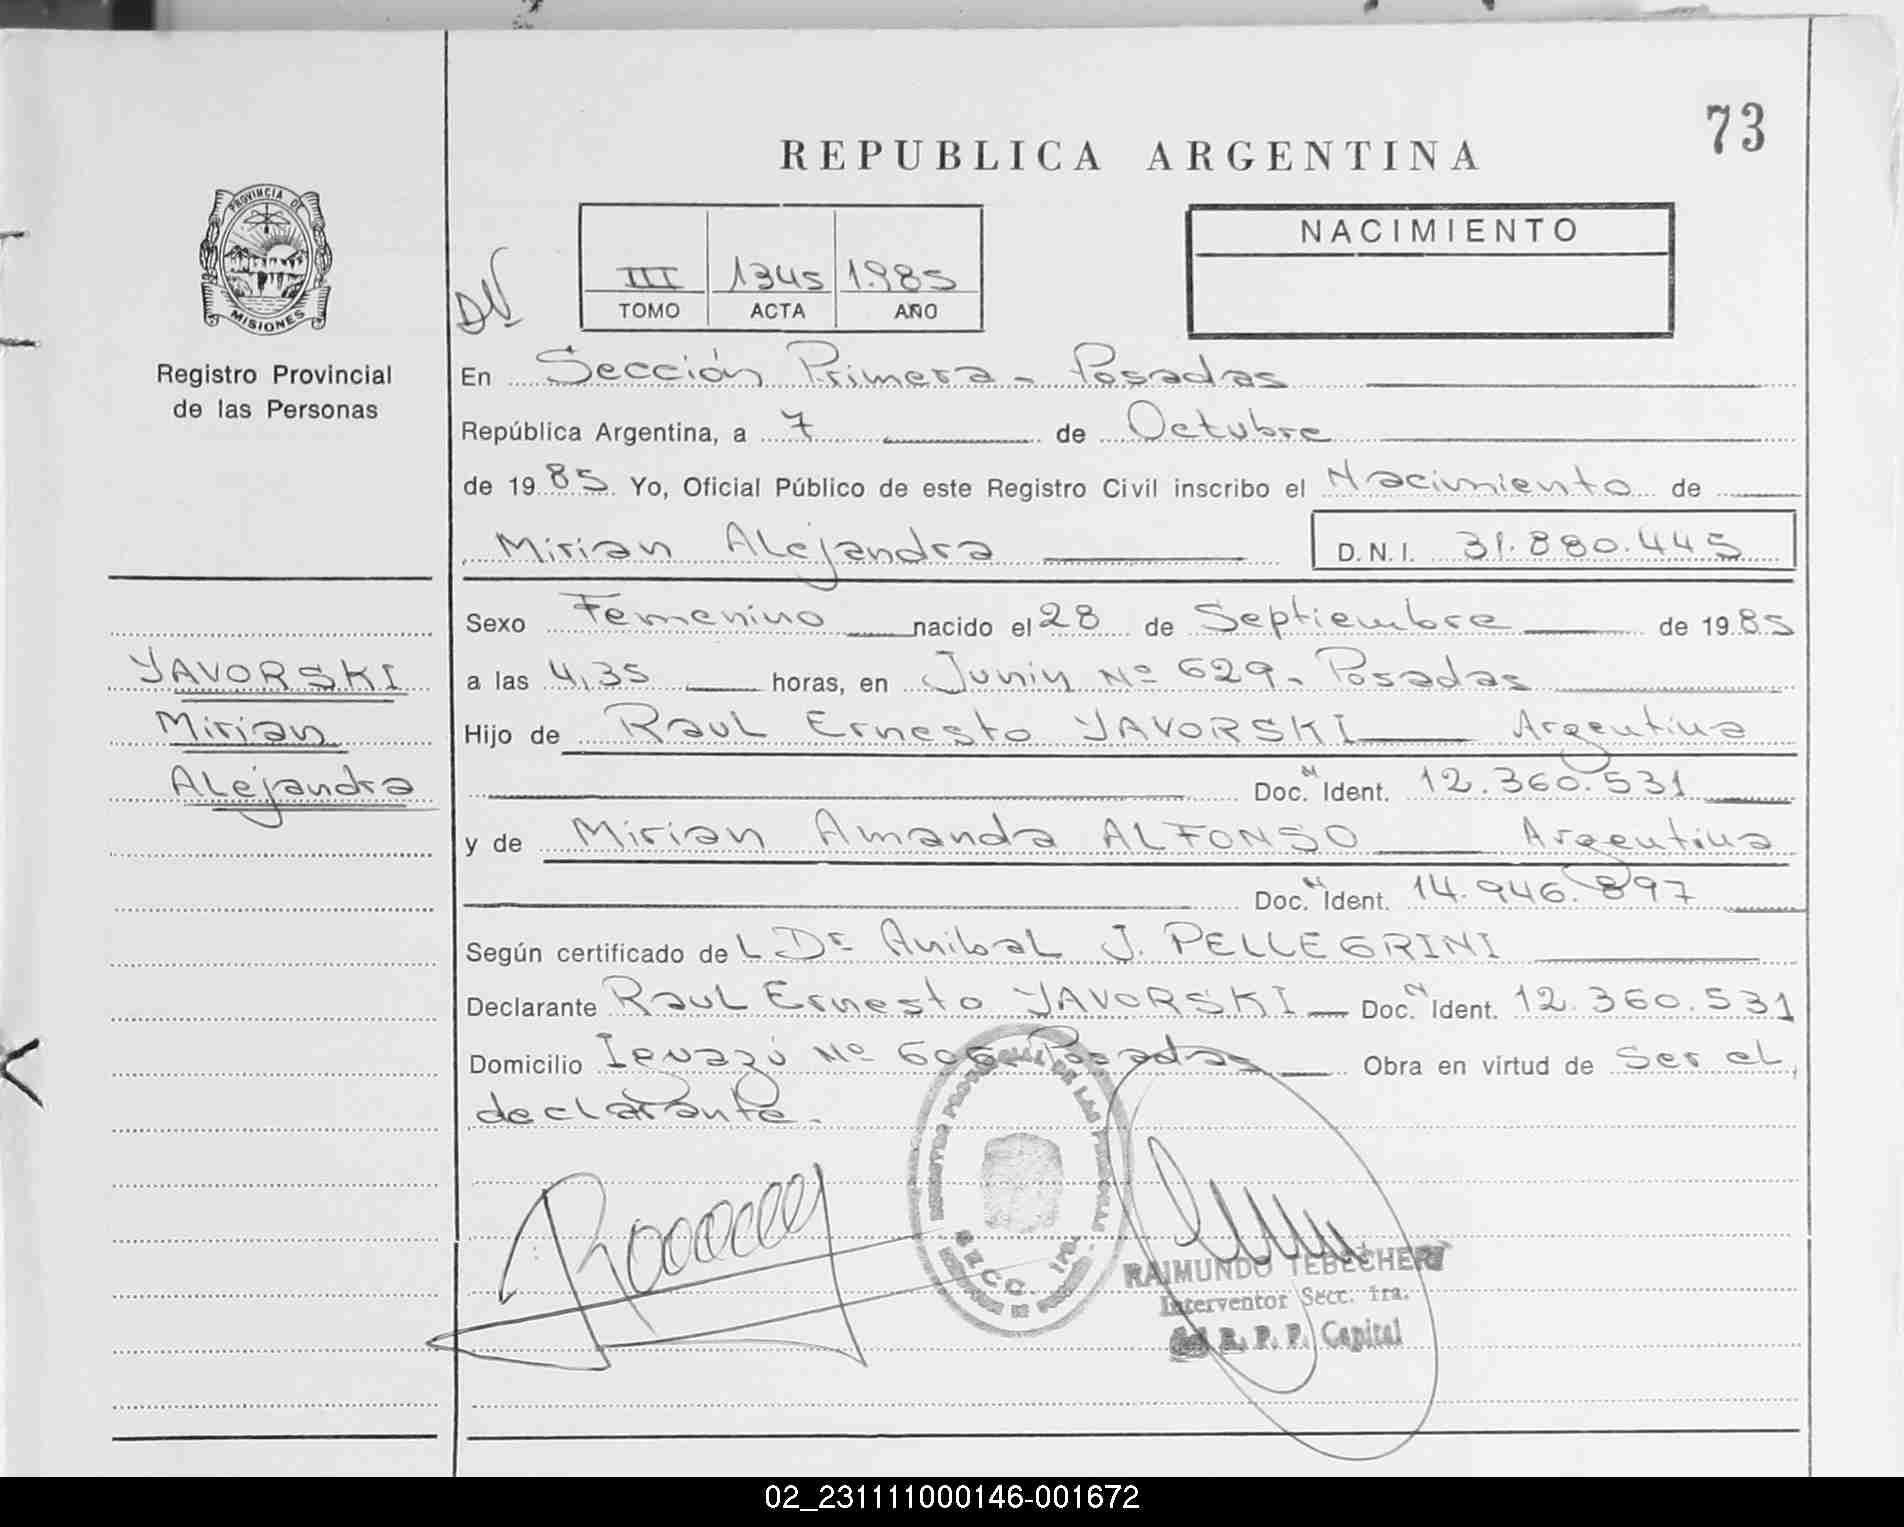 73
REPUBLICA ARGENTINA
PROVINCIA DE
MISIONES
Registro Provincial
de las Personas
NACIMIENTO
DN
III 1345 1.985
TOMO ACTA AÑO
En Sección Primera - Posadas
República Argentina, a 7 de Octubre
de 1985 Yo, Oficial Público de este Registro Civil inscribo el Nacimiento de
Mirian Alejandra D.N.I. 31.880.445
Sexo Femenino nacido el 28 de Septiembre de 1985
YAVORSKI
Mirian
Alejandra
a las 4,35 horas, en Junin Nº 629 - Posadas
Hijo de Raul Ernesto YAVORSKI Argentina
Doc. N Ident. 12.360.531
y de Mirian Amanda ALFONSO Argentina
Doc. N Ident. 14.946.897
Según certificado de L Dr Anibal J. PELLEGRINI
Declarante Raul Ernesto YAVORSKI Doc. N Ident. 12.360.531
Domicilio Iguazú Nº 606 Posadas Obra en virtud de Ser el
declarante.
SECC. 1RA.
RAIMUNDO TEBECHERI
Interventor Secc. 1ra.
del R. P. P. Capital
02_231111000146-001672